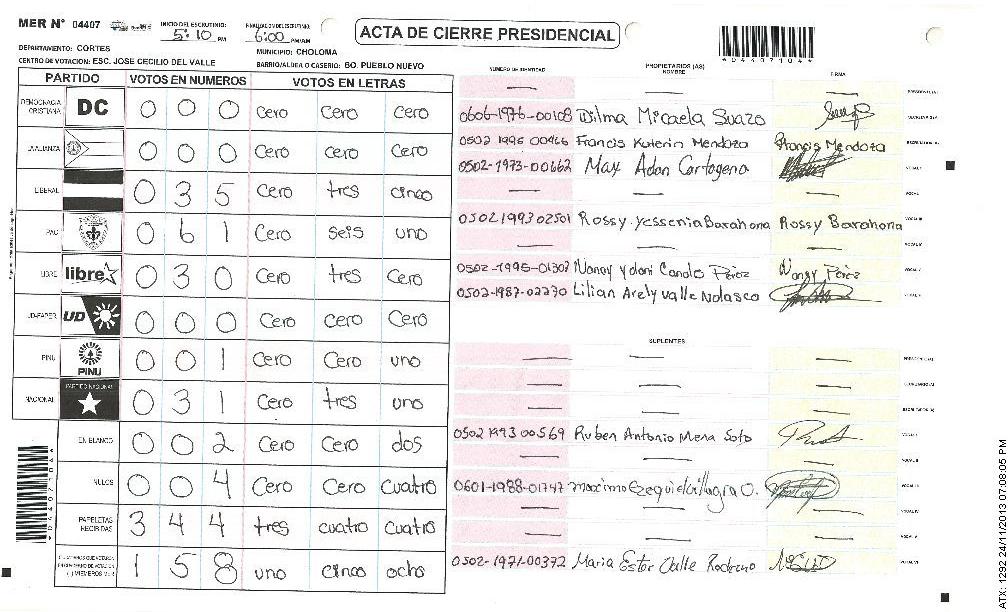 MER N° 04407
INICIO DEL ESCRUTINIO: 5:10 PM
FINALIZACION DEL ESCRUTINIO: 6:00 PM/AM
ACTA DE CIERRE PRESIDENCIAL
*04407104*
DEPARTAMENTO: CORTES
MUNICIPIO: CHOLOMA
CENTRO DE VOTACION: ESC. JOSE CECILIO DEL VALLE
BARRIO/ALDEA O CASERIO: BO. PUEBLO NUEVO
PARTIDO VOTOS EN NUMEROS VOTOS EN LETRAS
DEMOCRACIA CRISTIANA DC 0 0 0 Cero Cero Cero
LA ALIANZA 0 0 0 Cero Cero Cero
LIBERAL 0 3 5 Cero tres cinco
PAC 0 6 1 Cero seis uno
LIBRE libre 0 3 0 Cero tres Cero
UD-FAPER UD 0 0 0 Cero Cero Cero
PINU PINU 0 0 1 Cero Cero uno
NACIONAL PARTIDO NACIONAL 0 3 1 Cero tres uno
EN BLANCO 0 0 2 Cero Cero dos
NULOS 0 0 4 Cero Cero Cuatro
PAPELETAS RECIBIDAS 3 4 4 tres cuatro cuatro
1 5 8 uno cinco ocho
*04407104*
NUMERO DE IDENTIDAD PROPIETARIOS (AS) NOMBRE FIRMA
0606-1976-00108 Dilma Micaela Suazo
0502 1995 00466 Francis Katerin Mendoza Francis Mendoza
0502-1973-00662 Max Adan Cartagena
0502 1993 02501 Rossy Yessenia Barahona Rossy Barahona
0502-1995-01303
0502-1987-02230 Lilian Arely Valle Nolasco
SUPLENTES
0502 1993 00569 Ruben Antonio Mena Soto
0601-1988-01747
0502-1971-00372 Maria Ester Valle
ATX: 1292 24/11/2013 07:08:05 PM